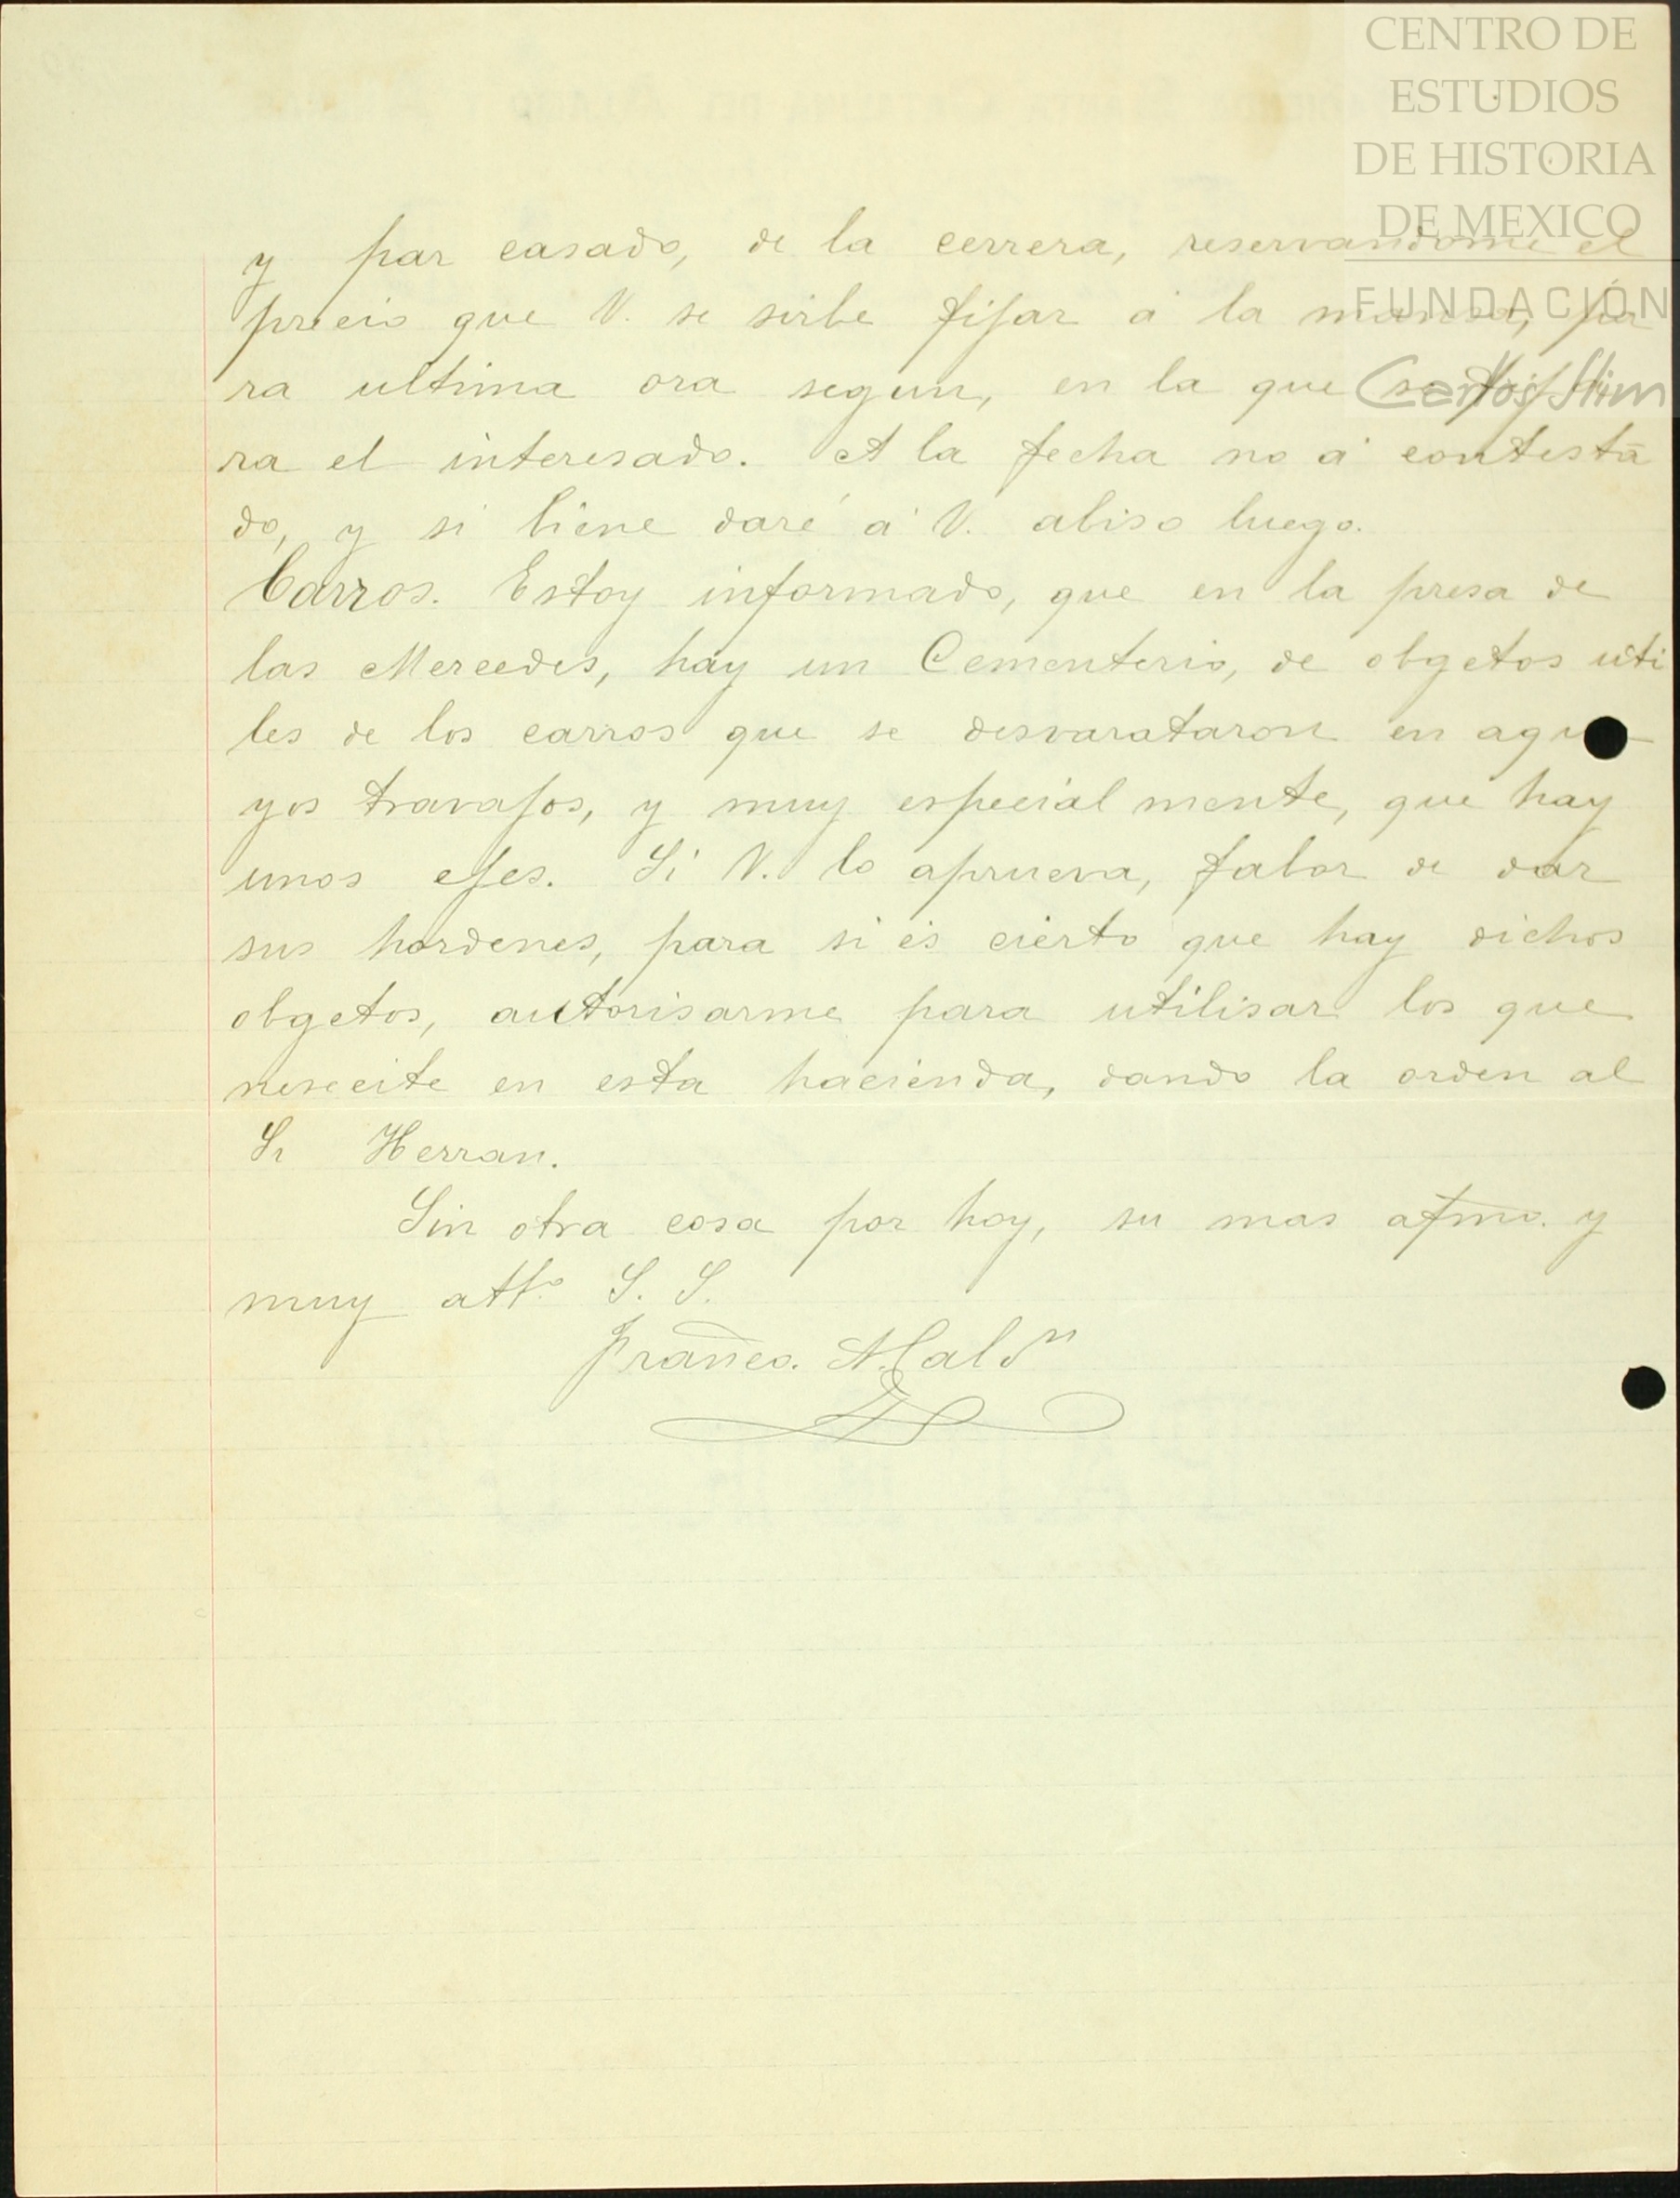 CENTRO DE
ESTUDIOS
DE HISTORIA
DE MEXICO
FUNDACIÓN
Carlos Slim
y par casado, de la cerrera, reservandome el
precio que V. se sirbe fijar á la mansa, pa
ra ultima ora segun, en la que se
ra el interesado. A la fecha no á contesta
do, y si biene daré á V. abiso luego.
Carros. Estoy informado, que en la presa de
las Mercedes, hay un Cementerio, de obgetos uti
les de los carros que se desvarataron en
yos travajos, y muy especial mente, que hay
unos ejes. Si V. lo aprueva, fabor de dar
sus hordenes, para si és cierto que hay dichos
obgetos, autorisarme para utilisar los que
nesecite en esta hacienda, dando la orden al
Sr Herran.
Sin otra cosa por hoy, su mas afmo. y
muy atto. S. S.
Franco. Maldn